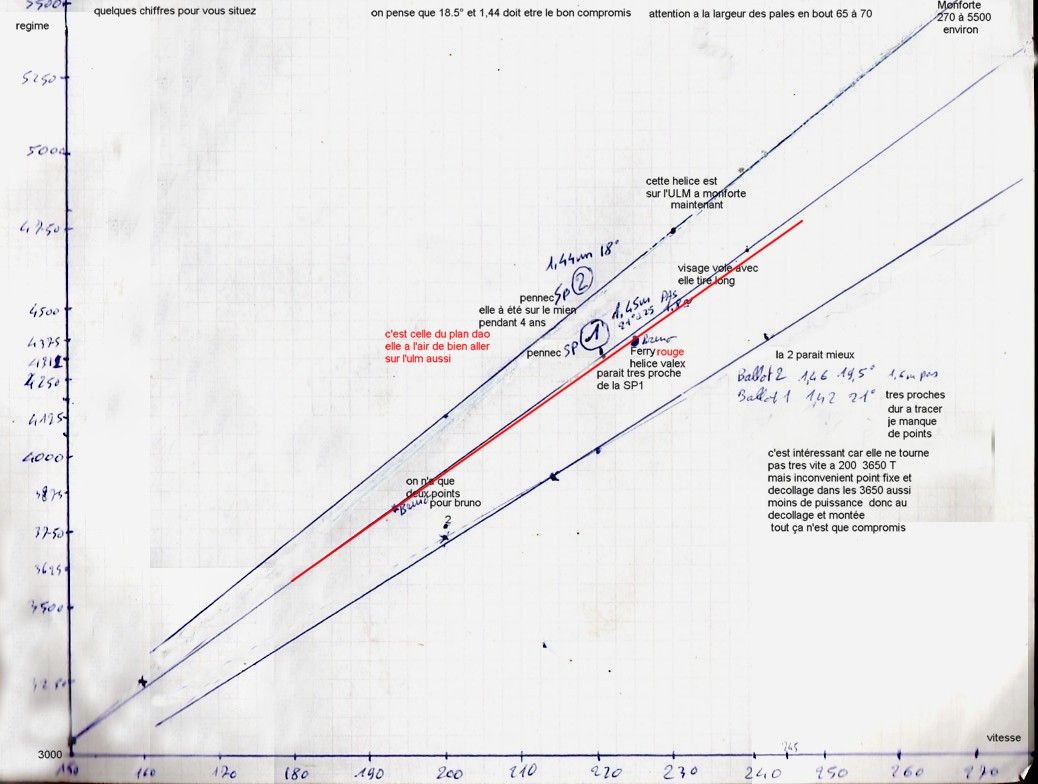 5500
regime
quelques chiffres pour vous situez
on pense que 18.5° et 1,44 doit etre le bon compromis
attention a la largeur des pales en bout 65 à 70
Monforte
270 à 5500
environ
5250
5000
4750
4500
4375
4312
4250
4125
4000
3875
3750
3625
3500
3250
3000
cette helice est
sur l'ULM a monforte
maintenant
1,44m 18°
pennec SP 2
elle à été sur le mien
pendant 4 ans
visage vole avec
elle tire long
c'est celle du plan dao
elle a l'air de bien aller
sur l'ulm aussi
1,45m
PAS
pennec SP 1
Bruno
Ferry rouge
helice valex
parait tres proche
de la SP1
la 2 parait mieux
Ballot 2 1,46 19,5° 1,6m pas
Ballot 1 1,42 21°
tres proches
dur a tracer
je manque
de points
c'est intéressant car elle ne tourne
pas tres vite a 200 3650 T
mais inconvenient point fixe et
decollage dans les 3650 aussi
moins de puissance donc au
decollage et montée
tout ça n'est que compromis
on n'a que
deux points
Bruno pour bruno
2
vitesse
245
150 160 170 180 190 200 210 220 230 240 250 260 270